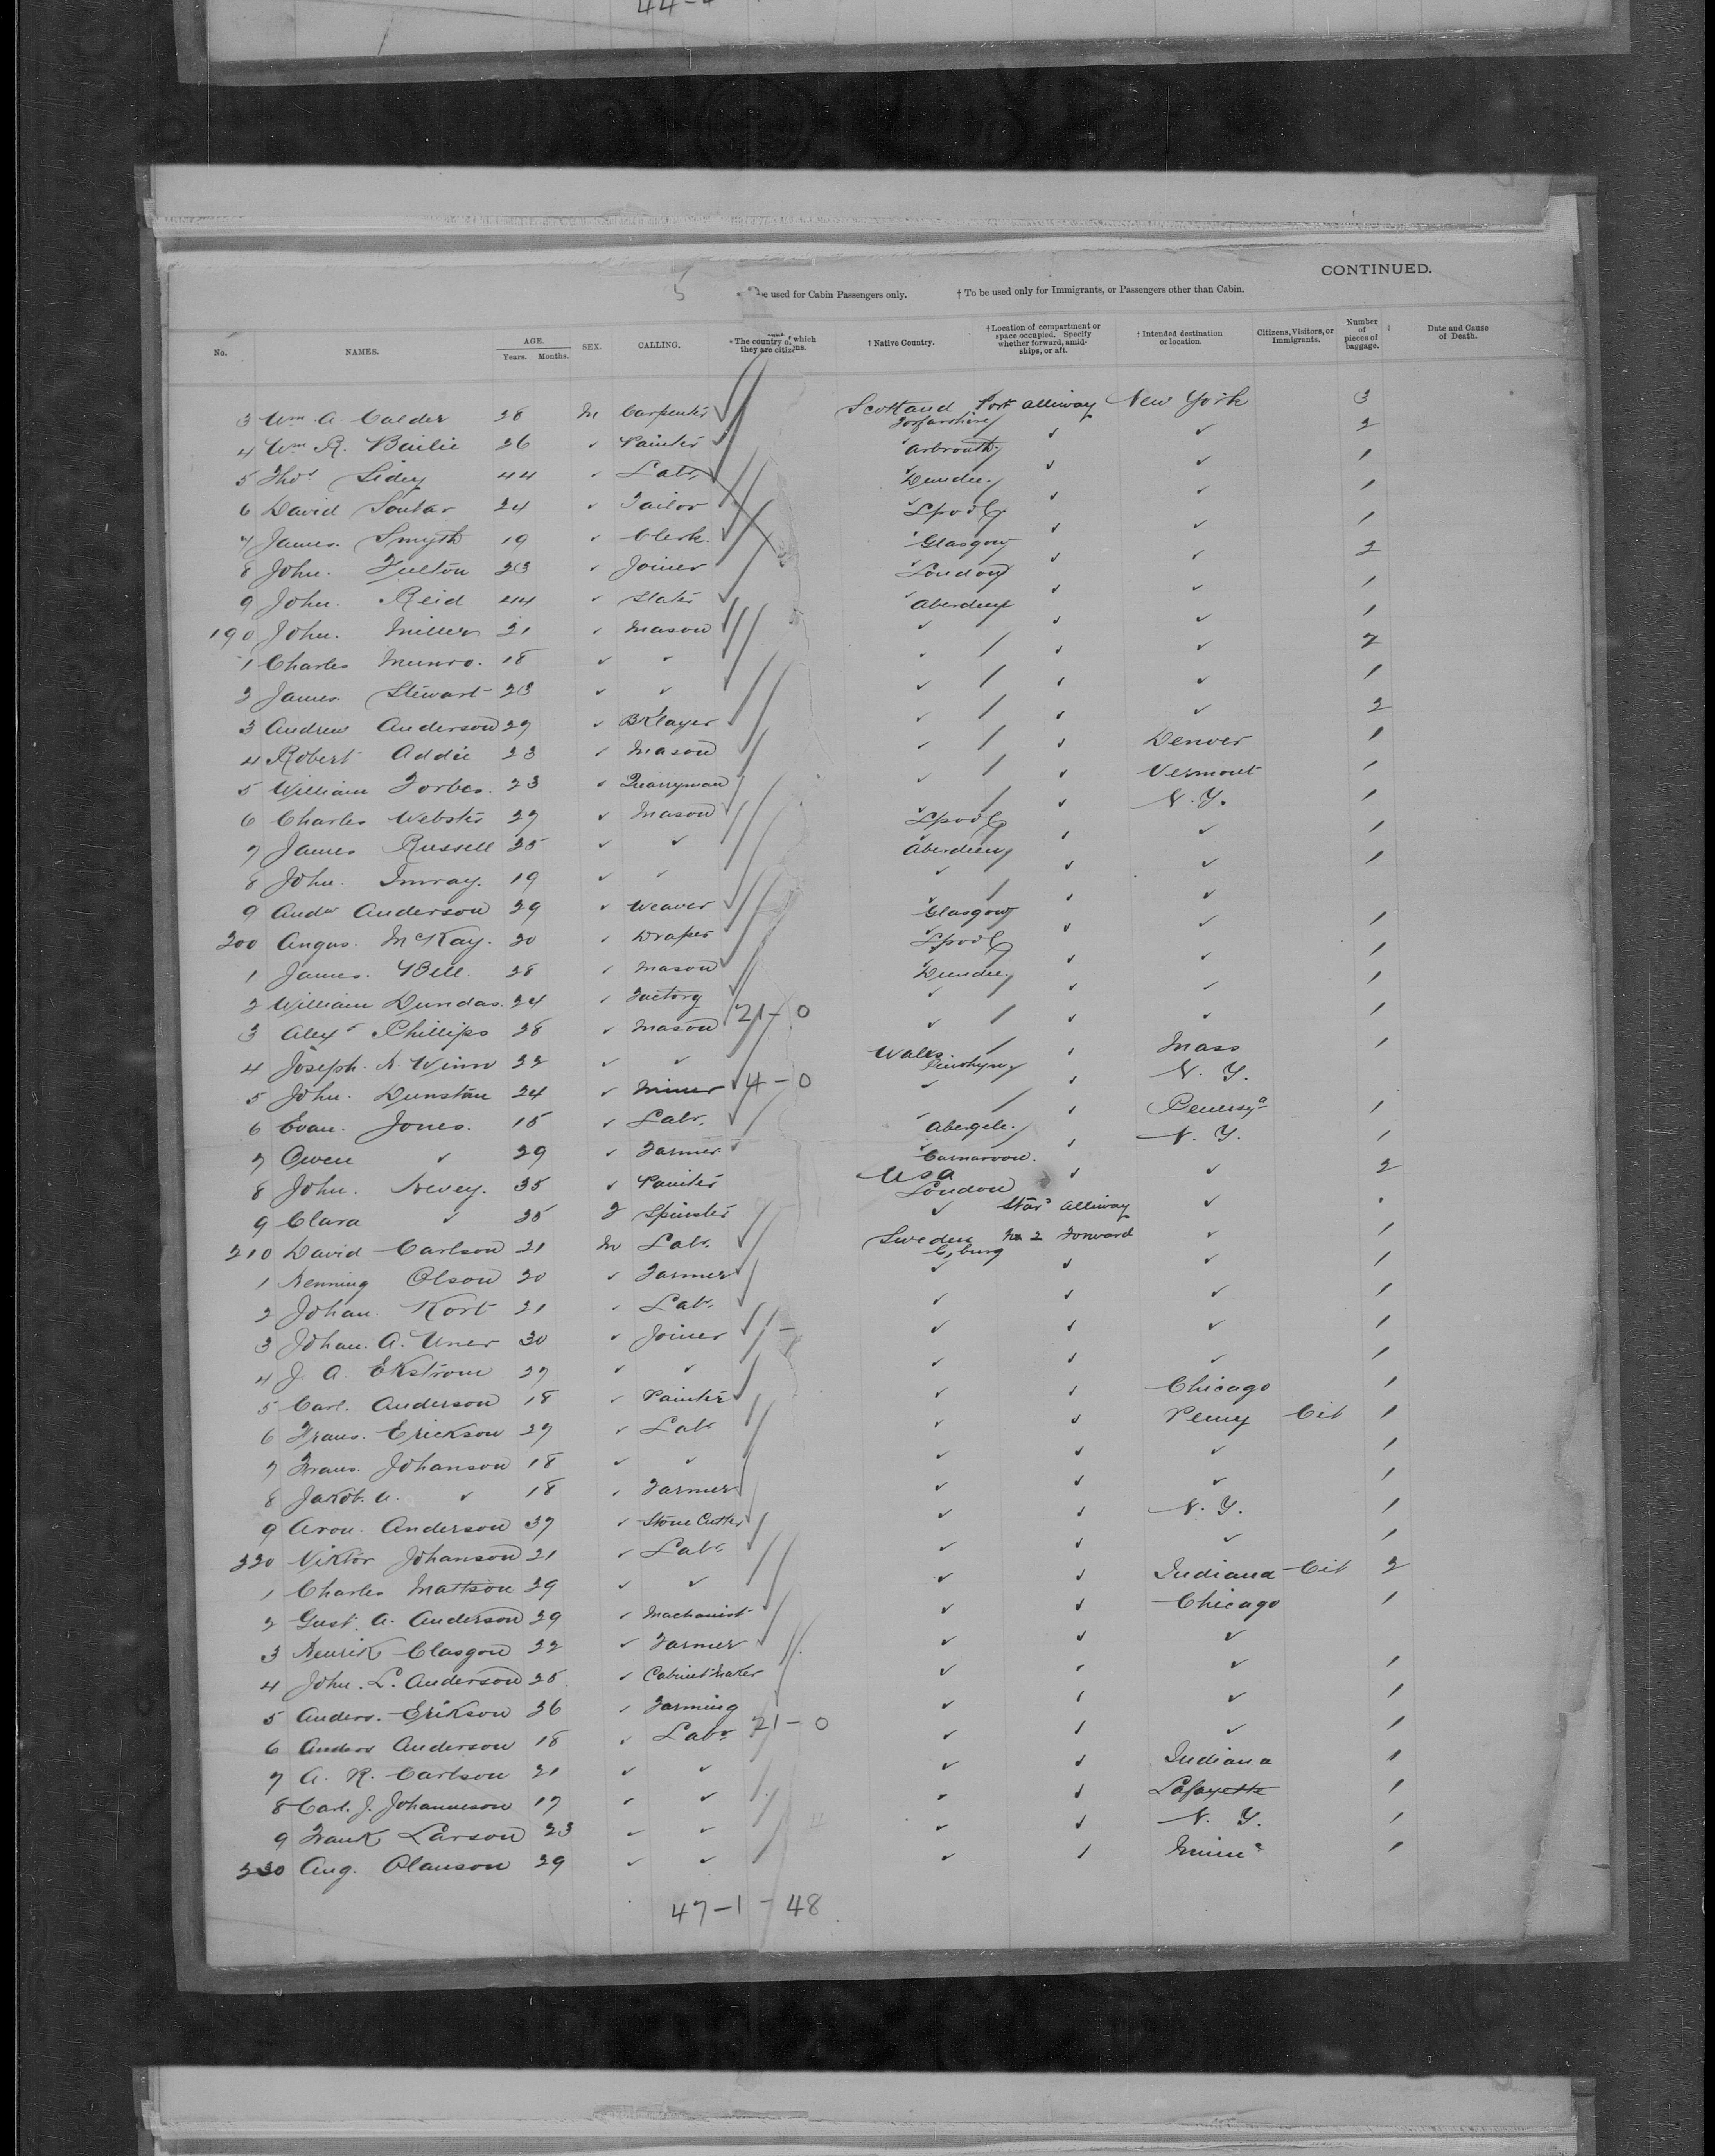 44-
5
CONTINUED.
be used for Cabin Passengers only. † To be used only for Immigrants, or Passengers other than Cabin.
No. NAMES. AGE. Years. Months. SEX. CALLING. *The country of which they are citizens. † Native Country. † Location of compartment or space occupied. Specify whether forward, amidships, or aft. † Intended destination or location. Citizens, Visitors, or Immigrants. Number of pieces of baggage. Date and Cause of Death.
3 Wm A. Calder 28 M Carpenter Scotland Forfarshire Port Alliway New York 3
4 Wm R. Bailie 26 ✓ Painter ✓ Arbroath ✓ ✓ 2
5 Thos Sidey 44 ✓ Labr ✓ Dundee ✓ ✓ 1
6 David Soutar 24 ✓ Tailor ✓ Lpool ✓ ✓ 1
7 James Smyth 19 ✓ Clerk ✓ Glasgow ✓ ✓ 1
8 John Fulton 23 ✓ Joiner ✓ London ✓ ✓ 2
9 John Reid 44 ✓ Slater ✓ Aberdeen ✓ ✓ 1
190 John Miller 21 ✓ Mason ✓ ✓ ✓ 1
1 Charles Munro 18 ✓ ✓ ✓ ✓ ✓ 2
2 James Stewart 23 ✓ ✓ ✓ ✓ ✓ 1
3 Andrew Anderson 29 ✓ BKlayer ✓ ✓ ✓ 2
4 Robert Addie 23 ✓ Mason ✓ ✓ Denver 1
5 William Forbes 23 ✓ Quarryman ✓ ✓ Vermont 1
6 Charles Webster 29 ✓ Mason ✓ Lpool ✓ N.Y. 1
7 James Russell 25 ✓ ✓ ✓ Aberdeen ✓ ✓ 1
8 John Imray 19 ✓ ✓ ✓ ✓ ✓ 1
9 Andw Anderson 29 ✓ Weaver ✓ Glasgow ✓ ✓
200 Angus McKay 20 ✓ Draper ✓ Lpool ✓ ✓ 1
1 James Bell 28 ✓ Mason ✓ Dundee ✓ ✓ 1
2 William Dundas 24 ✓ Factory ✓ ✓ ✓ 1
3 Alexr Phillips 28 ✓ Mason 21-0 ✓ ✓ ✓ 1
4 Joseph A. Winn 22 ✓ ✓ Wales ✓ Mass 1
5 John Dunstan 24 ✓ Miner 4-0 ✓ ✓ N.Y.
6 Evan Jones 18 ✓ Labr ✓ Abergele ✓ Pennsya 1
7 Owen ✓ 29 ✓ Farmer ✓ Carnarvon ✓ N.Y. 1
8 John Hevey 35 ✓ Painter USA London ✓ ✓ 2
9 Clara ✓ 25 F Spinster ✓ Star Alliway ✓
210 David Carlson 21 M Labr Sweden Gburg No 2 Forward ✓ 1
1 Henning Olson 20 ✓ Farmer ✓ ✓ ✓ 1
2 Johan Kort 21 ✓ Labr ✓ ✓ ✓ 1
3 Johan A. Uner 30 ✓ Joiner ✓ ✓ ✓ 1
4 J. A. Ekstrom 27 ✓ ✓ ✓ ✓ ✓ 1
5 Carl Anderson 18 ✓ Painter ✓ ✓ Chicago 1
6 Frans Erickson 27 ✓ Labr ✓ ✓ Penny Cit 1
7 Frans Johanson 18 ✓ ✓ ✓ ✓ ✓ 1
8 Jakob A. ✓ 18 ✓ Farmer ✓ ✓ ✓ 1
9 Aron Anderson 37 ✓ Stone Cutter ✓ ✓ N.Y. 1
220 Viktor Johanson 21 ✓ Labr ✓ ✓ ✓ 1
1 Charles Mattson 29 ✓ ✓ ✓ ✓ Indiana Cit 2
2 Gust. A. Anderson 29 ✓ Machanist ✓ ✓ Chicago 1
3 Henrik Clasgon 22 ✓ Farmer ✓ ✓ ✓
4 John L. Anderson 25 ✓ Cabinet Maker ✓ ✓ ✓ 1
5 Anders Erikson 36 ✓ Farming ✓ ✓ ✓ 1
6 Anders Anderson 18 ✓ Labr 21-0 ✓ ✓ ✓ 1
7 A. R. Carlson 21 ✓ ✓ ✓ ✓ Indiana 1
8 Carl J. Johanneson 17 ✓ ✓ ✓ ✓ Lafayette 1
9 Frank Larson 23 ✓ ✓ ✓ ✓ N.Y. 1
230 Aug. Olauson 29 ✓ ✓ ✓ ✓ Minna 1
47-1-48